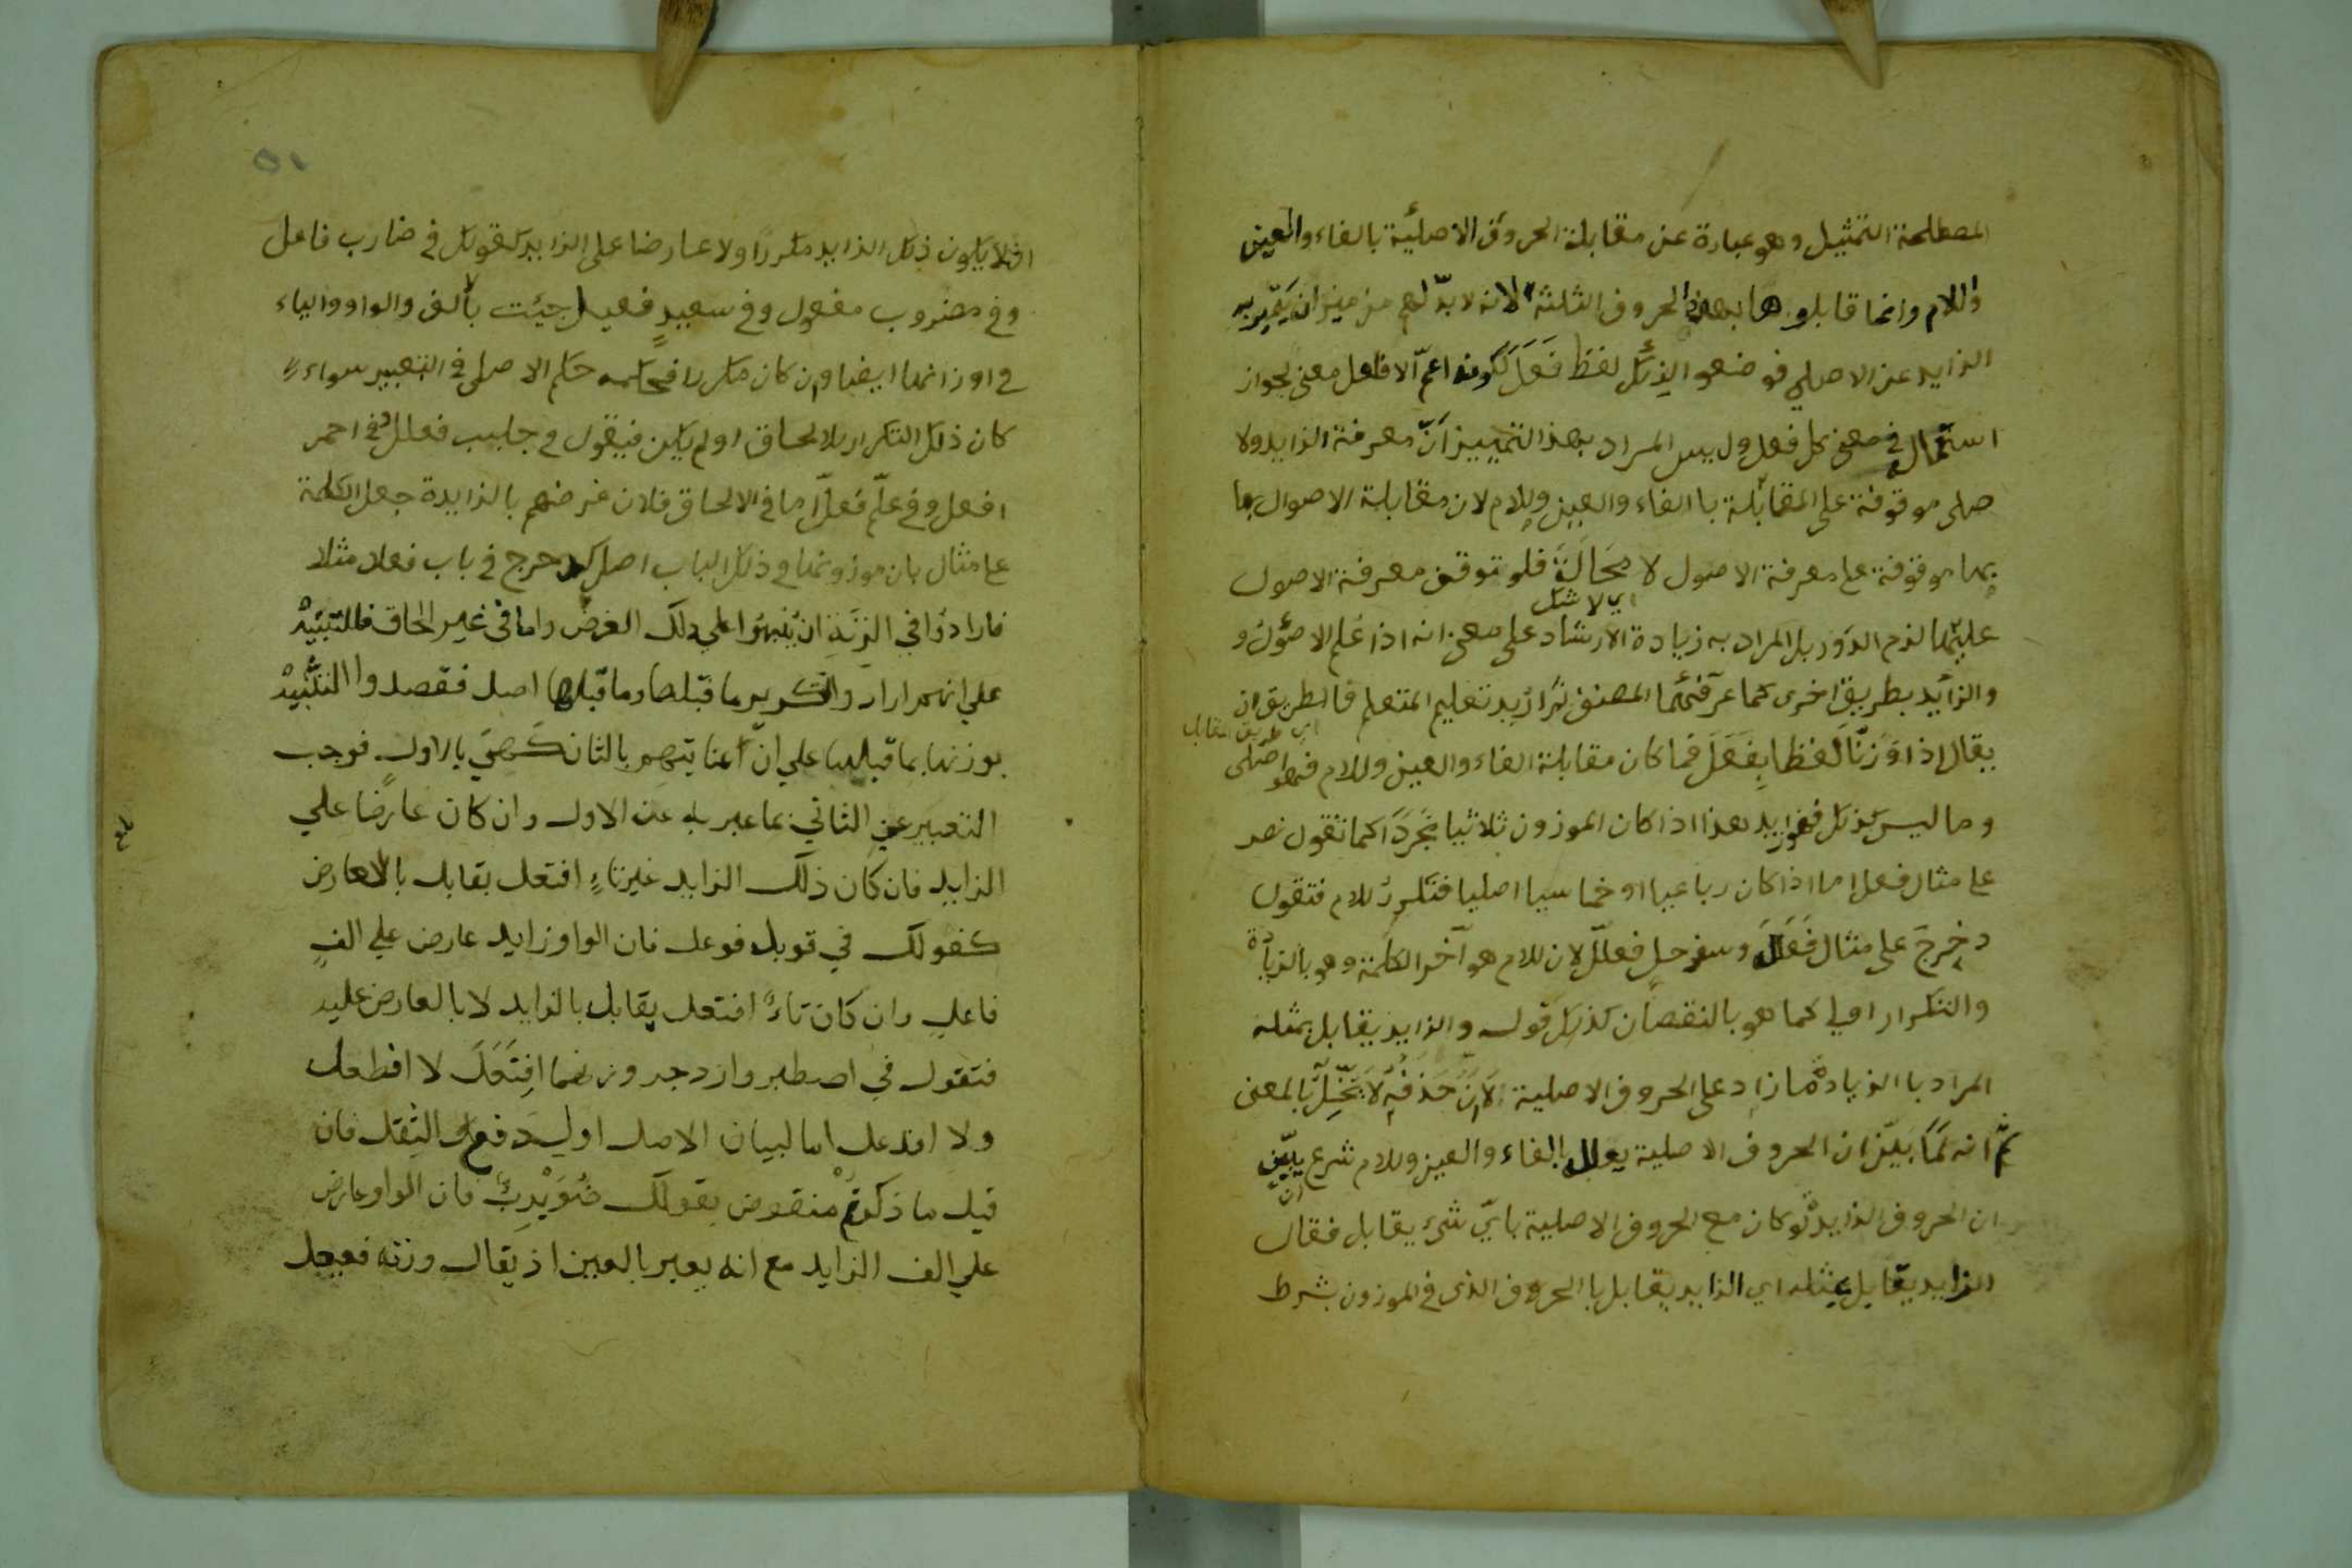 المصطلحة التمثيل وهو عبارة عن مقابلة الحروف الاصلية بالفاء والعين
واللام وانما قابلوها بهذا الحروف الثلثة لانه لا بدّ لهم من ميزان يتميز به
الزايد عن الاصلي فوضعوا لذلك لفظ فَعَلَ لكونه اعمّ الافعل معنى لجواز
استعماله في معنى كل فعل وليس المراد بهذا التمييز انّ معرفة الزايد ولا
صلى موقوفة على المقابلة باالفاء والعين وللام لان مقابلة الاصوال بها
بها موقوفة على معرفة الاصول لا مَحَالَةَ فلو توقف معرفة الاصول
اي لا شك
عليهما لزم الدور بل المراد به زيادة الارشاد على معنى انه اذا عُلم الاصول و
والزائد بطريق اخرى كما عرفتهما المصنف ثم اريد تعليم المتعلم فالطريق ان
اي طريق المقابل
يقال اذا وَزَنّا لفظا بِفَعَلَ فما كان مقابلة الفاء والعين وللام فهو اصلى
وما ليس كذلك فهو زايد هذا اذا كان الموزون ثلاثيا مجردًا كما تقول نصر
على مثال فعل اما اذا كان رباعيا او خماسيا اصليا فتكرر للام فتقول
دخرج على مثال فَعلَلَ وسفرجل فعلّل لان للام هو آخر الكلمة وهو بالزيادة
والتكرار اولى كما هو بالنقصان كذلك قوله والزايد يقابل بمثله
المراد باالزيادة ما زاد على الحروف الاصلية لانّ حَذفُه لا يُخِلّ بالمعنى
ثمّ انه لمّا بيّن ان الحروف الاصلية يقابل بالفاء والعين وللام شرع يبيّن
ان
ان الحروف الزايد لو كان مع الحروف الاصلية باىّ شىء يقابل فقال
الزايد يقابل بمثله اي الزايد يقابل باالحروف الذى في الموزون بشرط
٥١
ان لا يكون ذلك الزايد مكررا ولا عارضا على الزايد كقولك في ضارب فاعل
وفي مضروب مفعول وفي سعيدٍ فعيل جيئت بألف والواو والياء
في اوزانها ايضا وان كان مكررا فحكمه حكم الاصلى في التعبير سواء
كان ذلك التكرار للالحاق او لم يكن فيقول في جلبب فعلل وفي احمر
افعل وفي علّم فعّل اما في الالحاق فلان غرضهم بالزايدة جعل الكلمة
على مثال بان موزونها في ذلك الباب اصل كدحرج في باب فعلل مثلا
فارادوا في الزنة ان ينبهوا على ذلك الغرض واما في غير الحاق فللتنبيه
على انهم ارادوا بتكرير ما قبلها وما قبلها اصل فقصدوا التنبيه
بوزنها بما قبلها على انّ اعنايتهم بالثاني كهي بالاول فوجب
التعبير عن الثاني بما عبر به عن الاول وان كان عارضا علي
الزايد فان كان ذلك الزايد غير تاءٍ افتعل يقابل بالعارض
كقولك في قوبل فوعل فان الواو زايد عارض على الف
فاعل وان كان تاءً افتعل يقابل بالزايد لا بالعارض عليه
فتقول في اصطبر وازدجر وزنهما افتَعَلَ لا افطعل
ولا افدعل اما لبيان الاصل او لدفع الثقل فان
قيل ما ذكرتم منقوض بقولك ضُوَيْرِبٌ فان الواو عارض
علي الف الزايد مع انه يعبر بالعين اذ يقال وزنه فعيعل